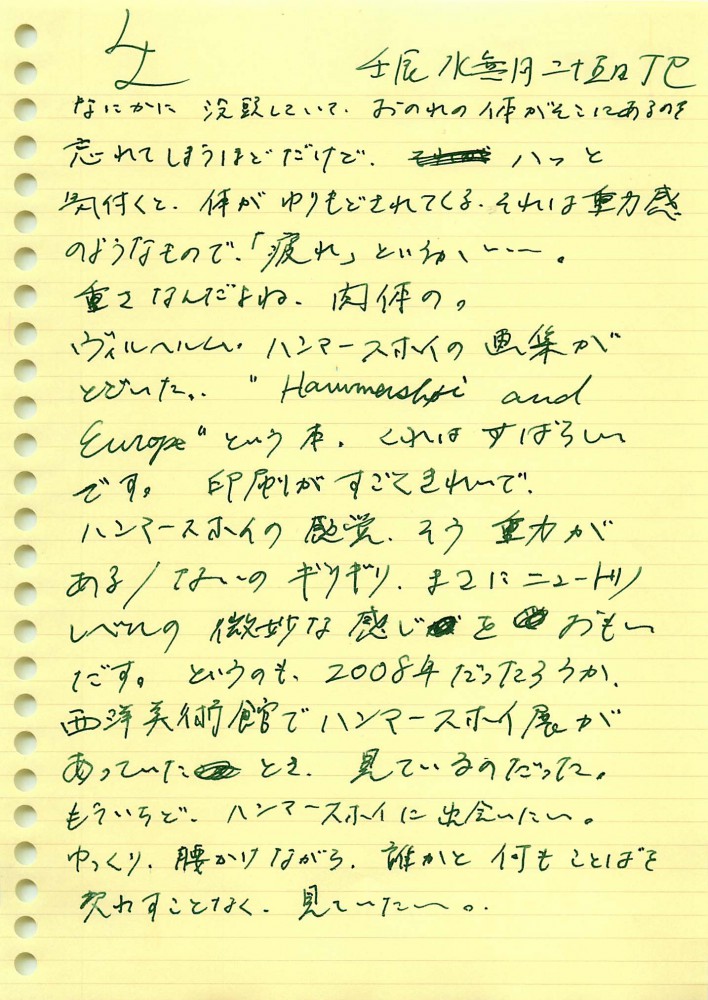 壬辰 水無月二十五日 丁巳
なにかに 没頭していて、おのれの 体がそこにあるのを
忘れてしまうほどだけど、 ハッと
気付くと、体が ゆりもどされてくる。それは 重力感
のようなもので、「疲れ」という
重さなんだよね、肉体の。
ヴィルヘルム・ハンマースホイの 画集が
とどいた。 "Hammershøi and
Europe" という 本。これは すばらしい
です。 印刷がすごくきれいで、
ハンマースホイの 感覚、そう 重力が
ある/ないの ギリギリ、まさにニュートリノ
レベルの 微妙な 感じ を おもい
だす。 というのも、2008年だったろうか、
西洋美術館でハンマースホイ展が
あっていた とき、見ているのだった。
もういちど、ハンマースホイに 出会いたい。
ゆっくり、腰かけながら、誰かと 何もことばを
交わすことなく、見ていたい。